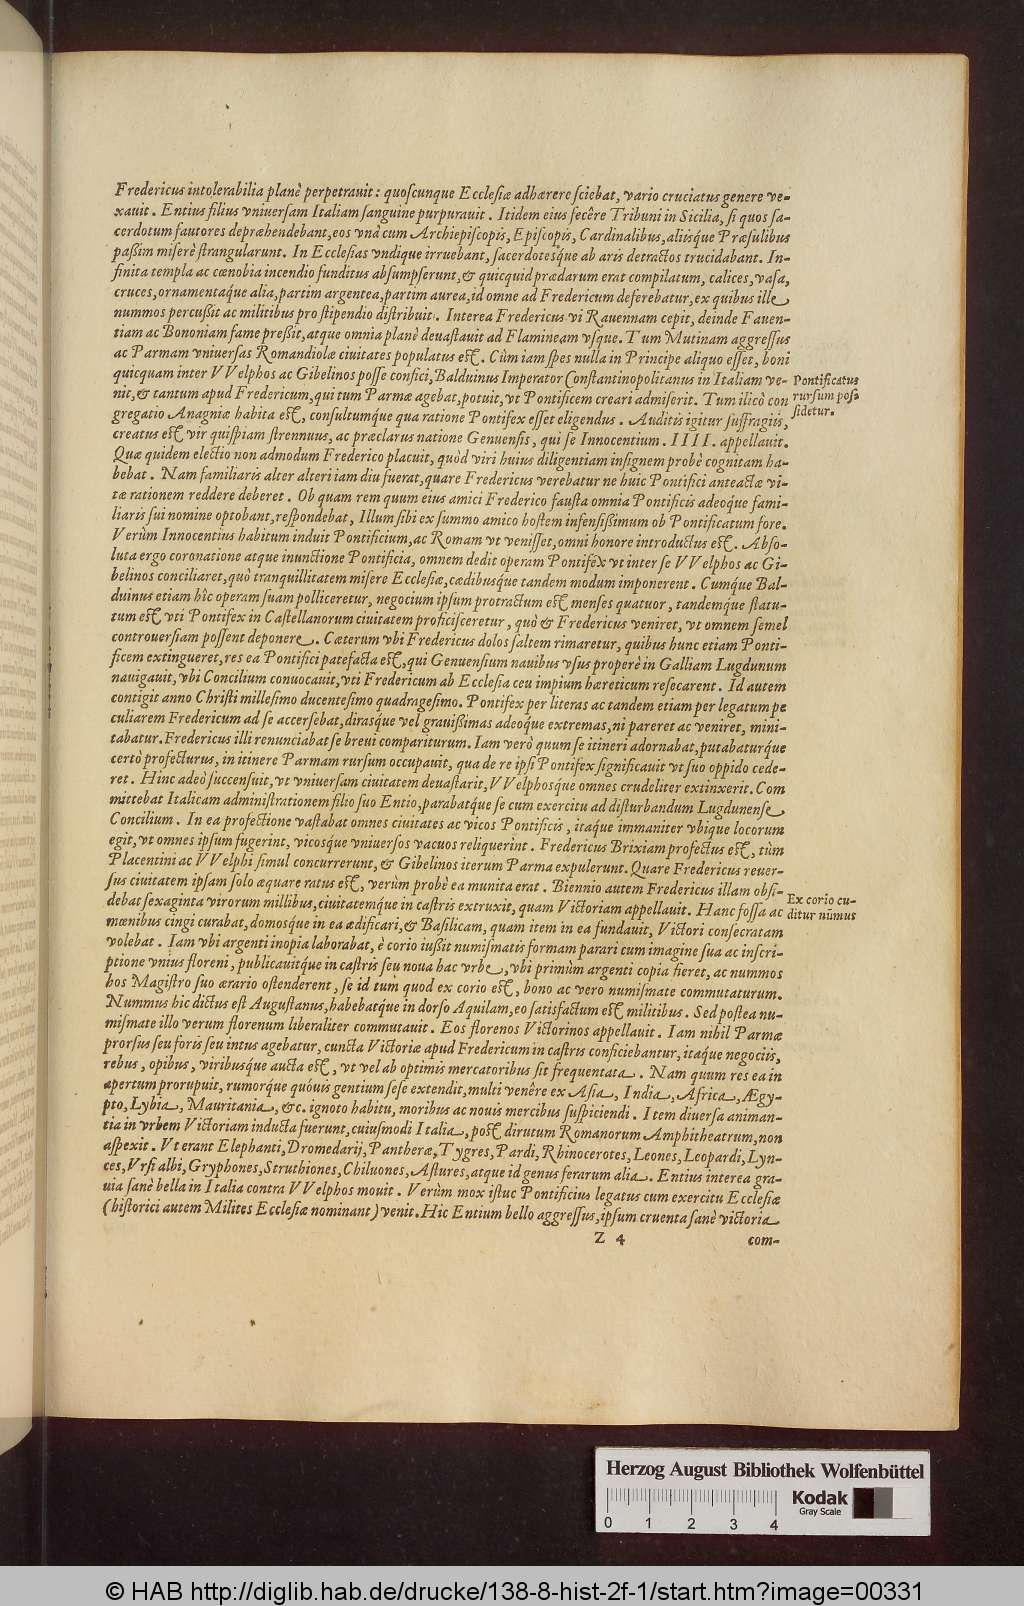 Fredericus intolerabilia planè perpetrauit: quoscunque Ecclesiæ adhærere sciebat, vario cruciatus genere ve-
xauit. Entius filius vniuersam Italiam sanguine purpurauit. Itidem eius fecêre Tribuni in Sicilia, si quos sa-
cerdotum fautores depræhendebant, eos vnà cum Archiepiscopis, Episcopis, Cardinalibus, aliisque Præsulibus
passim miserè strangularunt. In Ecclesias vndique irruebant, sacerdotesque ab aris detractos trucidabant. In-
finita templa ac cœnobia incendio funditus absumpserunt, & quicquid prædarum erat compilatum, calices, vasa,
cruces, ornamentaque alia, partim argentea, partim aurea, id omne ad Fredericum deferebatur, ex quibus ille
nummos percussit ac militibus pro stipendio distribuit. Interea Fredericus vi Rauennam cepit, deinde Fauen-
tiam ac Bononiam fame pressit, atque omnia planè deuastauit ad Flamineam vsque. Tum Mutinam aggressus
ac Parmam vniuersas Romandiolæ ciuitates populatus est. Cùm iam spes nulla in Principe aliquo esset, boni
quicquam inter VVelphos ac Gibelinos posse confici, Balduinus Imperator Constantinopolitanus in Italiam ve-
nit, & tantum apud Fredericum, qui tum Parmæ agebat, potuit, vt Pontificem creari admiserit. Tum ilicò con
gregatio Anagniæ habita est, consultumque qua ratione Pontifex esset eligendus. Auditis igitur suffragiis,
Pontificatus
rursum pos-
sidetur.
creatus est vir quispiam strennuus, ac præclarus natione Genuensis, qui se Innocentium. IIII. appellauit.
Quæ quidem electio non admodum Frederico placuit, quòd viri huius diligentiam insignem probè cognitam ha-
bebat. Nam familiaris alter alteri iam diu fuerat, quare Fredericus verebatur ne huic Pontifici anteactæ vi-
tæ rationem reddere deberet. Ob quam rem quum eius amici Frederico fausta omnia Pontificis adeoque fami-
liaris sui nomine optobant, respondebat, Illum sibi ex summo amico hostem infensissimum ob Pontificatum fore.
Verùm Innocentius habitum induit Pontificium, ac Romam vt venisset, omni honore introductus est. Abso-
luta ergo coronatione atque inunctione Pontificia, omnem dedit operam Pontifex vt inter se VVelphos ac Gi-
belinos conciliaret, quò tranquillitatem misere Ecclesiæ, cædibusque tandem modum imponerent. Cumque Bal-
duinus etiam hîc operam suam polliceretur, negocium ipsum protractum est menses quatuor, tandemque statu-
tum est vti Pontifex in Castellanorum ciuitatem proficisceretur, quò & Fredericus veniret, vt omnem semel
controuersiam possent deponere. Cæterum vbi Fredericus dolos saltem rimaretur, quibus hunc etiam Ponti-
ficem extingueret, res ea Pontifici patefacta est, qui Genuensium nauibus vsus properè in Galliam Lugdunum
nauigauit, vbi Concilium conuocauit, vti Fredericum ab Ecclesia ceu impium hæreticum resecarent. Id autem
contigit anno Christi millesimo ducentesimo quadragesimo. Pontifex per literas ac tandem etiam per legatum pe
culiarem Fredericum ad se accersebat, dirasque vel grauissimas adeoque extremas, ni pareret ac veniret, mini-
tabatur. Fredericus illi renunciabat se breui compariturum. Iam verò quum se itineri adornabat, putabaturque
certò profecturus, in itinere Parmam rursum occupauit, qua de re ipsi Pontifex significauit vt suo oppido cede-
ret. Hinc adeò succensuit, vt vniuersam ciuitatem deuastarit, VVelphosque omnes crudeliter extinxerit. Com
mittebat Italicam administrationem filio suo Entio, parabatque se cum exercitu ad disturbandum Lugdunense
Concilium. In ea profectione vastabat omnes ciuitates ac vicos Pontificis, itaque immaniter vbique locorum
egit, vt omnes ipsum fugerint, vicosque vniuersos vacuos reliquerint. Fredericus Brixiam profectus est, tùm
Placentini ac VVelphi simul concurrerunt, & Gibelinos iterum Parma expulerunt. Quare Fredericus reuer-
sus ciuitatem ipsam solo æquare ratus est, verùm probè ea munita erat. Biennio autem Fredericus illam obsi-
debat sexaginta virorum millibus, ciuitatemque in castris extruxit, quam Victoriam appellauit. Hanc fossa ac
Ex corio cu-
ditur nümus
mœnibus cingi curabat, domosque in ea ædificari, & Basilicam, quam item in ea fundauit, Victori consecratam
volebat. Iam vbi argenti inopia laborabat, è corio iussit numismatis formam parari cum imagine sua ac inscri-
ptione vnius floreni, publicauitque in castris seu noua hac vrbe, vbi primùm argenti copia fieret, ac nummos
hos Magistro suo ærario ostenderent, se id tum quod ex corio est, bono ac vero numismate commutaturum.
Nummus hic dictus est Augustanus, habebatque in dorso Aquilam, eo satisfactum est militibus. Sed postea nu-
mismate illo verum florenum liberaliter commutauit. Eos florenos Victorinos appellauit. Iam nihil Parmæ
prorsus seu foris seu intus agebatur, cuncta Victoriæ apud Fredericum in castris conficiebantur, itaque negociis,
rebus, opibus, viribusque aucta est, vt vel ab optimis mercatoribus sit frequentata. Nam quum res ea in
apertum prorupuit, rumorque quóuis gentium sese extendit, multi venêre ex Asia, India, Africa, Ægy-
pto, Lybia, Mauritania, &c. ignoto habitu, moribus ac nouis mercibus suspiciendi. Item diuersa animan-
tia in vrbem Victoriam inducta fuerunt, cuiusmodi Italia, post dirutum Romanorum Amphitheatrum, non
aspexit. Vt erant Elephanti, Dromedarij, Pantheræ, Tygres, Pardi, Rhinocerotes, Leones, Leopardi, Lyn-
ces, Vrsi albi, Gryphones, Struthiones, Chiluones, Astures, atque id genus ferarum alia. Entius interea gra-
uia sanè bella in Italia contra VVelphos mouit. Verùm mox istuc Pontificius legatus cum exercitu Ecclesiæ
(historici autem Milites Ecclesiæ nominant) venit. Hic Entium bello aggressus, ipsum cruenta sanè victoria
Z 4 com-
Herzog August Bibliothek Wolfenbüttel
Kodak
Gray Scale
0 1 2 3 4
© HAB http://diglib.hab.de/drucke/138-8-hist-2f-1/start.htm?image=00331